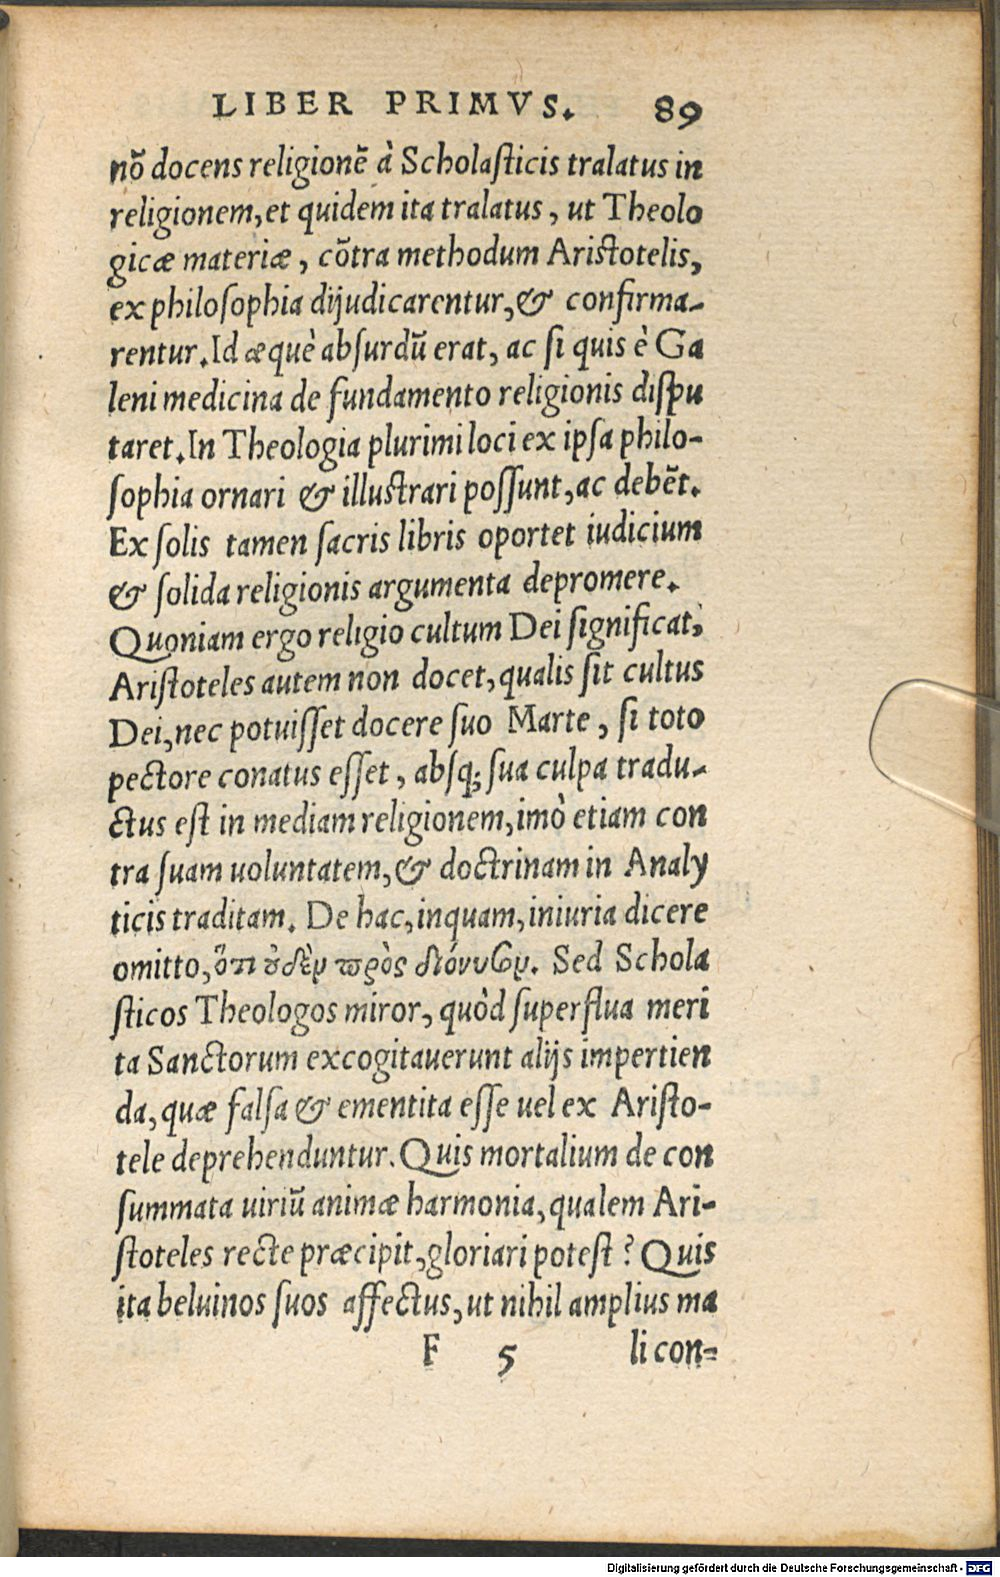 LIBER PRIMVS. 89
nō docens religionē à Scholaſticis tralatus in
religionem, et quidem ita tralatus, ut Theolo
gicæ materiæ, cōtra methodum Ariſtotelis,
ex philoſophia dijudicarentur, & confirma-
rentur. Id æquè abſurdū erat, ac ſi quis è Ga
leni medicina de fundamento religionis diſpu
taret. In Theologia plurimi loci ex ipſa philo-
ſophia ornari & illuſtrari poſſunt, ac debēt.
Ex ſolis tamen ſacris libris oportet iudicium
& ſolida religionis argumenta depromere.
Quoniam ergo religio cultum Dei ſignificat,
Ariſtoteles autem non docet, qualis ſit cultus
Dei, nec potuiſſet docere ſuo Marte, ſi toto
pectore conatus eſſet, abſq; ſua culpa tradu-
ctus eſt in mediam religionem, imò etiam con
tra ſuam uoluntatem, & doctrinam in Analy
ticis traditam. De hac, inquam, iniuria dicere
omitto, ὅτι ȣ̓δὲν πρὸς διόνυσον. Sed Schola
ſticos Theologos miror, quòd ſuperflua meri
ta Sanctorum excogitauerunt alijs impertien
da, quæ falſa & ementita eſſe uel ex Ariſto-
tele deprehenduntur. Quis mortalium de con
ſummata uiriū animæ harmonia, qualem Ari-
ſtoteles recte præcipit, gloriari poteſt? Quis
ita beluinos ſuos affectus, ut nihil amplius ma
F 5 li con-
Digitalisierung gefördert durch die Deutsche Forschungsgemeinschaft - DFG